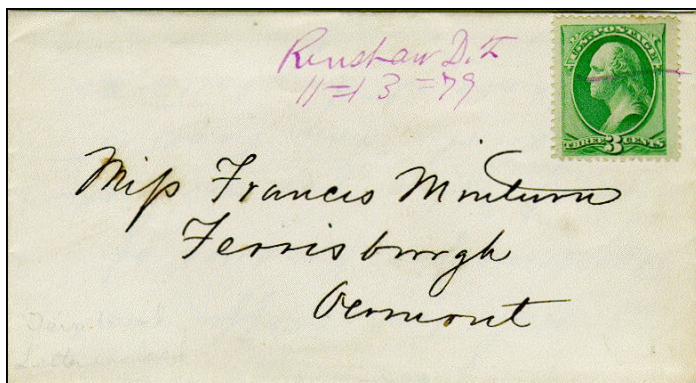 Renshaw D.T.
11=13=79
U.S. POSTAGE
THREE 3 CENTS
Miss Francis Minturn
Ferrisburgh
Vermont
Letter enclosed